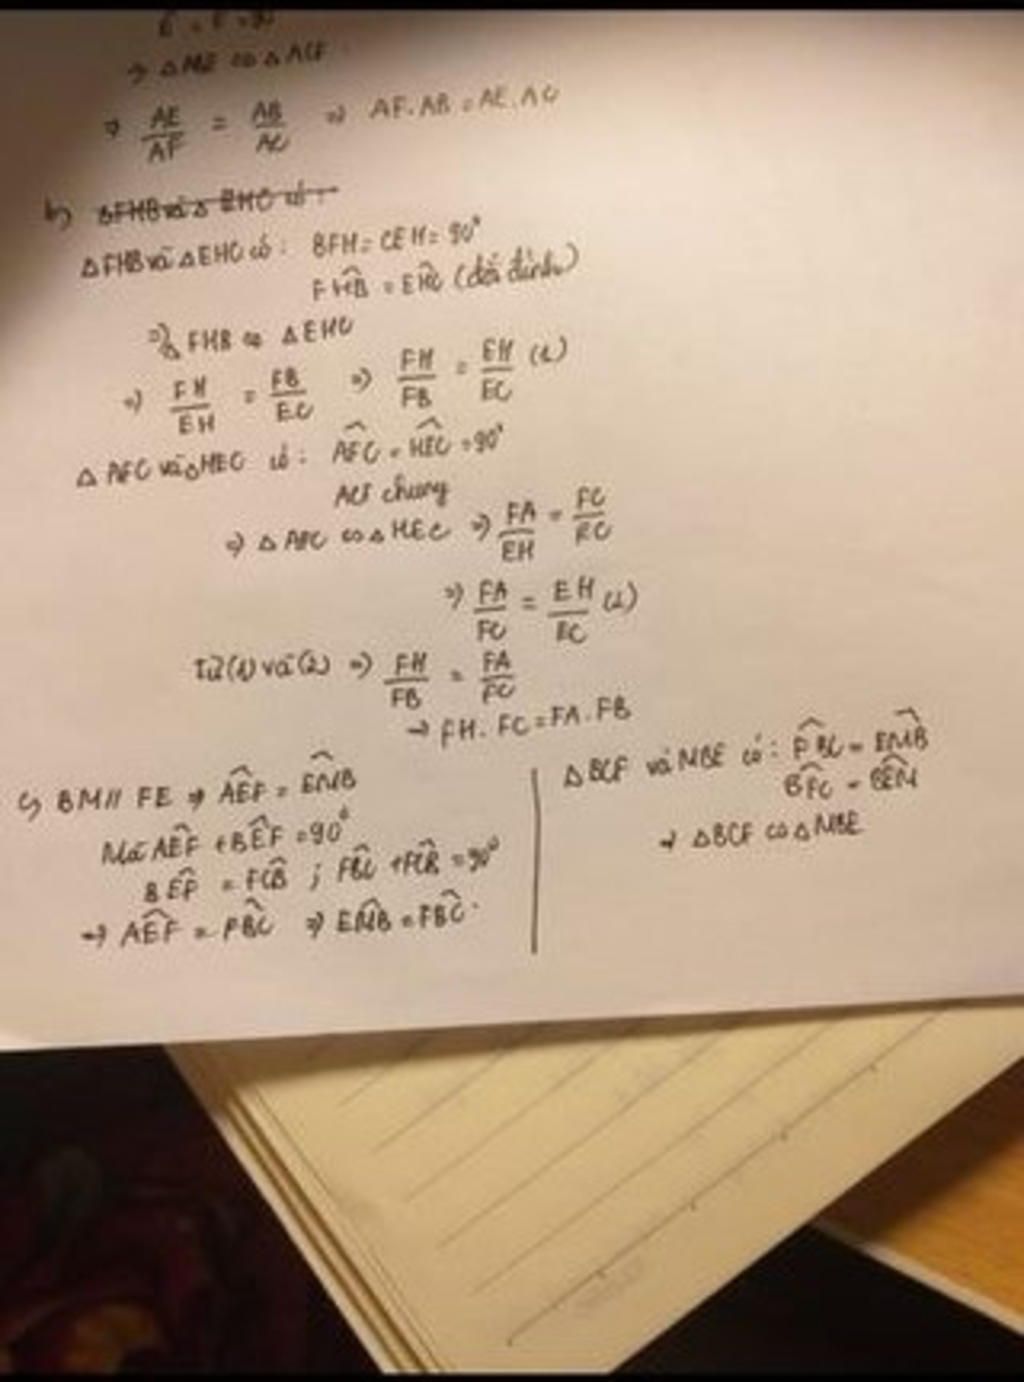 → △ABE ∽ △ACF
⇒ AE/AF = AB/AC ⇒ AF.AB = AE.AC
b) △FHB và △EHC có:
△FHB và △EHC có: BFH = CEH = 90°
FHB̂ = EHĈ (đối đỉnh)
⇒ △FHB ∽ △EHC
⇒ FH/EH = FB/EC ⇒ FH/FB = EH/EC (1)
△AFC và △HEC có: AFĈ = HEĈ = 90°
ACF chung
⇒ △AFC ∽ △HEC ⇒ FA/EH = FC/EC
⇒ FA/FC = EH/EC (2)
Từ (1) và (2) ⇒ FH/FB = FA/FC
→ FH.FC = FA.FB
c) BM // FE ⇒ AEF̂ = EMB̂
Mà AEF̂ + BEF̂ = 90°
BEF̂ = FCB̂ ; FBĈ + FCB̂ = 90°
→ AEF̂ = FBĈ ⇒ EMB̂ = FBĈ.
△BCF và MBE có: FBĈ = EMB̂
BFĈ = BEM̂
→ △BCF ∽ △MBE